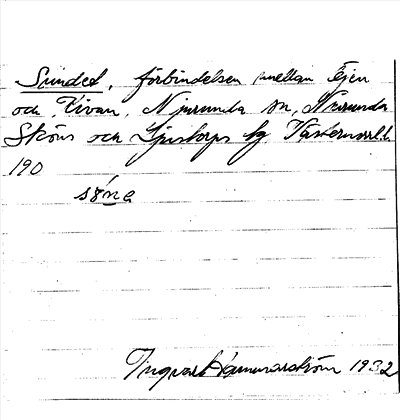 Sundet, förbindelsen mellan Tejen
och Kivan, Njurunda sn, Njurunda
Sköns och Ljustorps tg Västernorrl. l.
190
søna
Ingvar Hammarström 1932